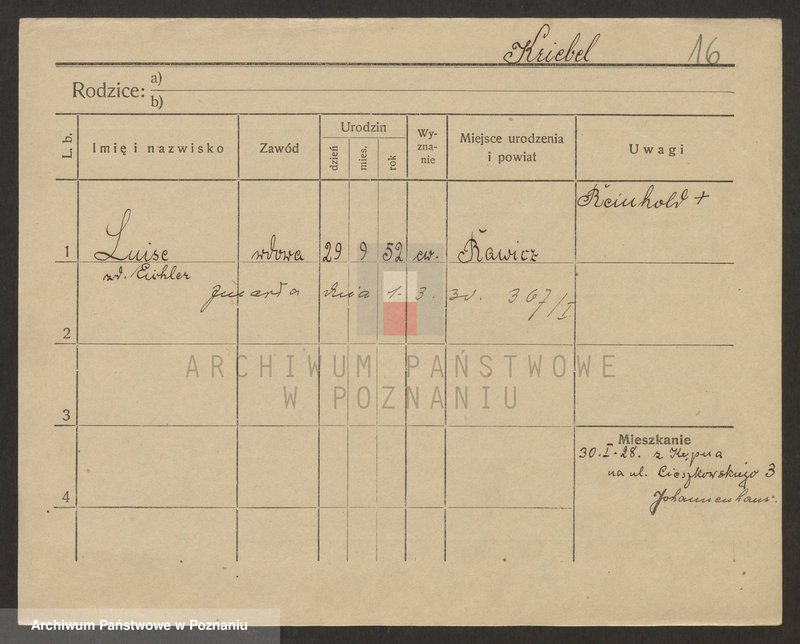 Kriebel 16
Rodzice: a)
b)
L. b. Imię i nazwisko Zawód Urodzin dzień mies. rok Wy-zna-nie Miejsce urodzenia i powiat Uwagi
Reinhold +
1 Luise wdowa 29 9 52 ew. Rawicz
zd. Eichler
zmarła dnia 1. 3. 30. 367/I
2
ARCHIWUM PAŃSTWOWE
W POZNANIU
3
Mieszkanie
30.I.28. z Kępna
na ul. Cieszkowskiego 3
4
Johannenhaus.
Archiwum Państwowe w Poznaniu